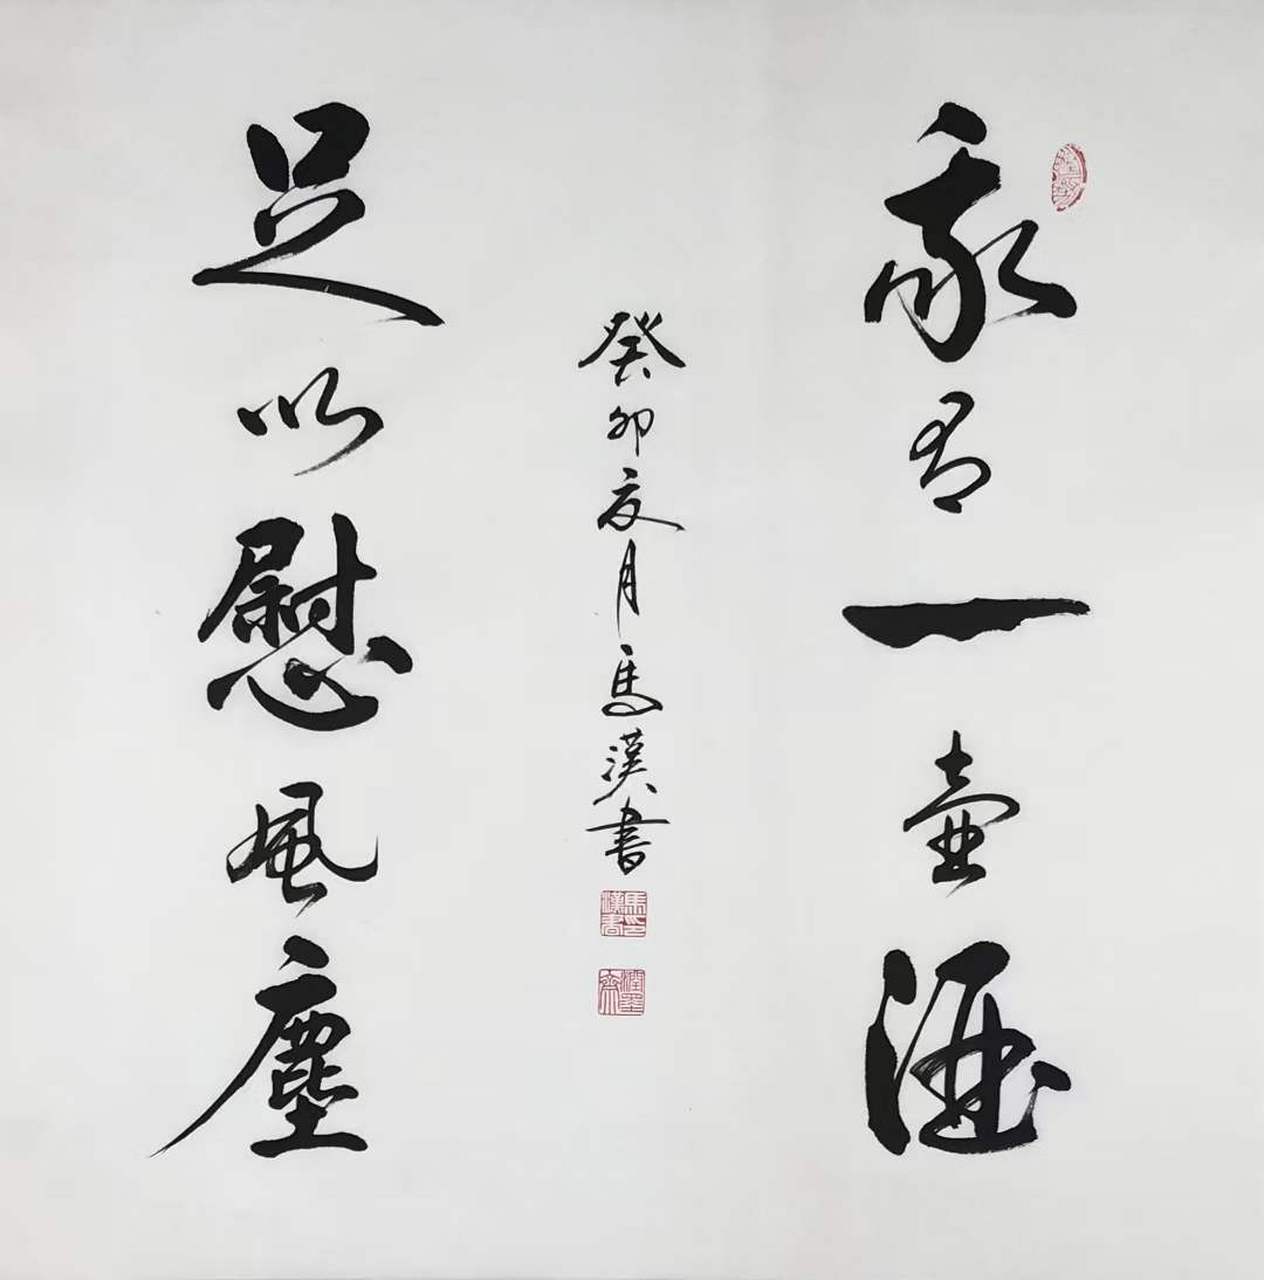 我有一壺酒
足以慰風塵
癸卯夏月馬漢書